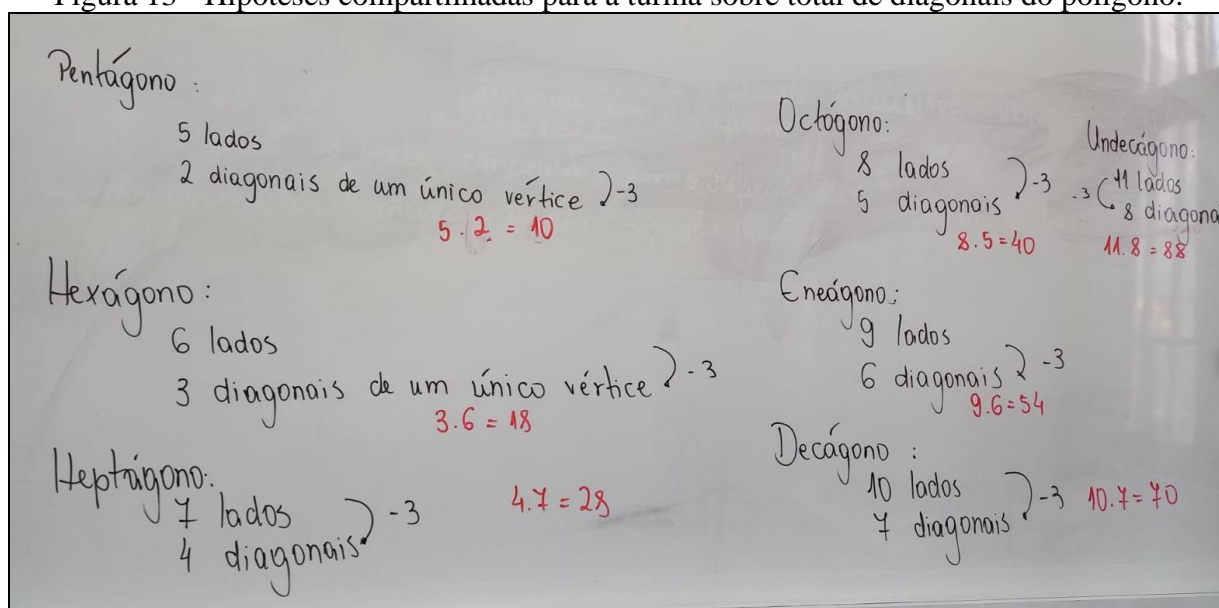 Figura 13 - Hipóteses compartilhadas para a turma sobre total de diagonais do polígono.
Pentágono:
5 lados
2 diagonais de um único vértice -3
5.2. = 10
Hexágono:
6 lados
3 diagonais de um único vértice -3
3.6 = 18
Heptágono:
7 lados
4 diagonais -3
4.7 = 28
Octógono:
8 lados
5 diagonais -3
8.5=40
Undecágono:
11 lados
-3
8 diagona
11.8=88
Eneágono:
9 lados
6 diagonais -3
9.6=54
Decágono:
10 lados
7 diagonais -3
10.7=70